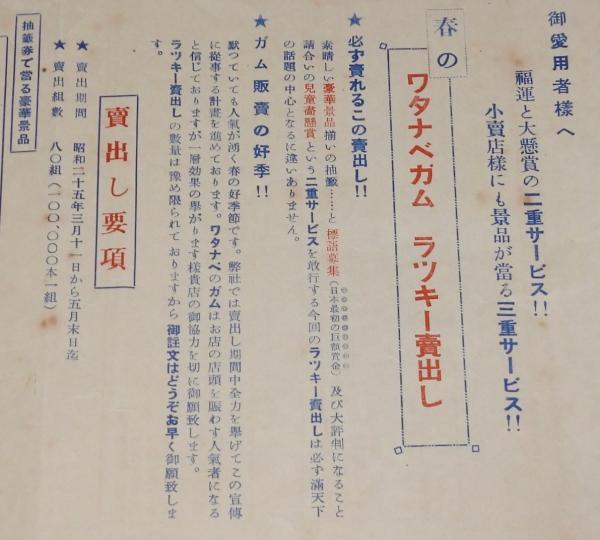 御愛用者樣へ
福運と大懸賞の二重サービス!!
小賣店樣にも景品が當る三重サービス!!
春の
ワタナベガム ラツキー賣出し
★ 必ず賣れるこの賣出し!!
素晴しい豪華景品揃いの抽籤……と標語募集(日本最初の巨額賞金)及び大評判になること
請合いの兒童畵懸賞という二重サービスを敢行する今回のラツキー賣出しは必ず滿天下
の話題の中心となるに違いありません。
★ ガム販賣の好季!!
默つていても人氣が湧く春の好季節です。弊社では賣出し期間中全力を擧げてこの宣傳
に從事する計畫を進めております。ワタナベのガムはお店の店頭を賑わす人氣者になる
と信じておりますが一層効果の擧がります樣貴店の御協力を切に御願致します。
ラツキー賣出しの數量は豫め限られておりますから御註文はどうぞお早く御願致しま
す。
賣出し要項
★ 賣出期間 昭和二十五年三月十一日から五月末日迄
★ 賣出組數 八〇組(一〇〇,〇〇〇本一組)
抽籤劵で當る豪華景品